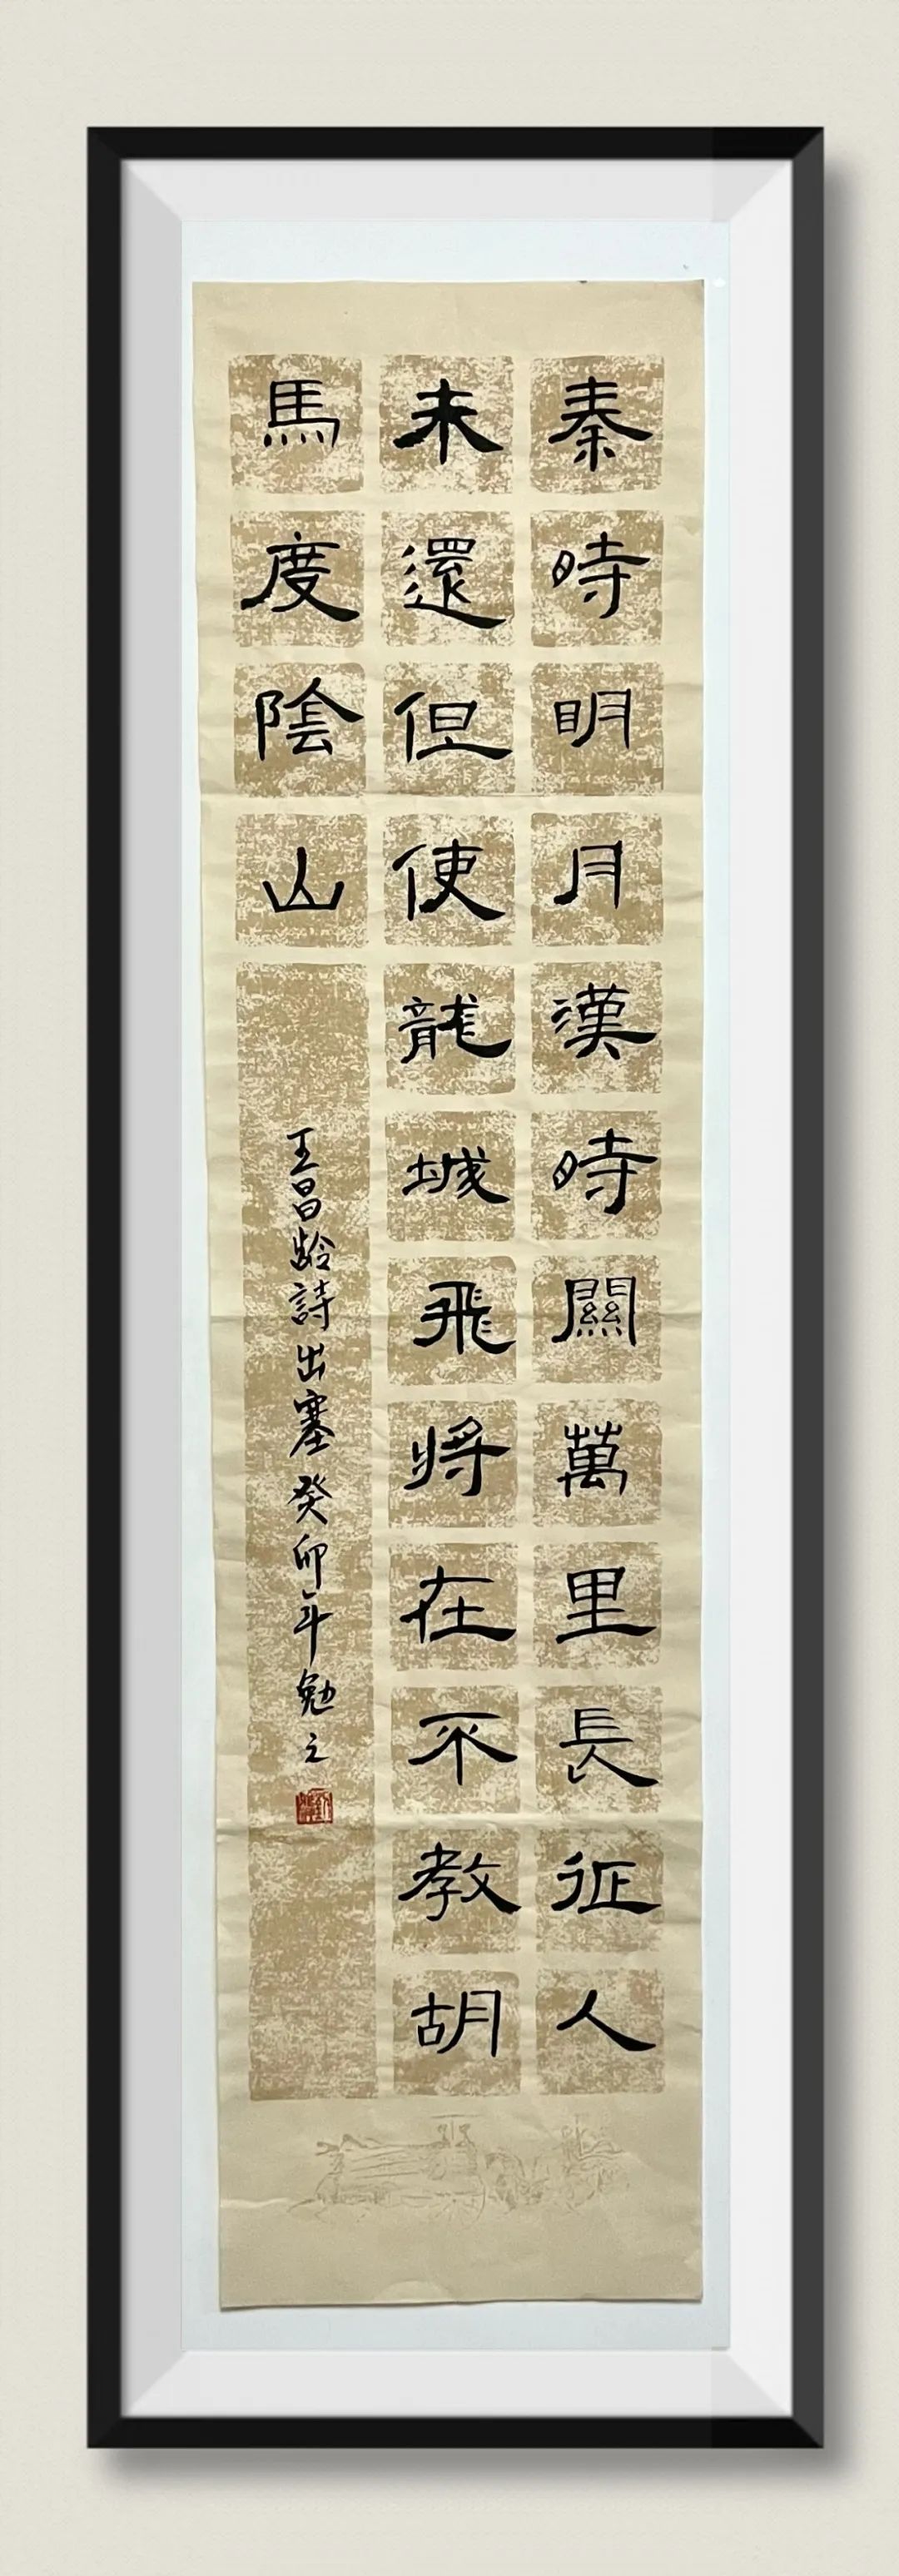 秦時明月漢時關萬里長征人
未還但使龍城飛將在不教胡
馬度陰山
王昌齡詩出塞癸卯年勉之